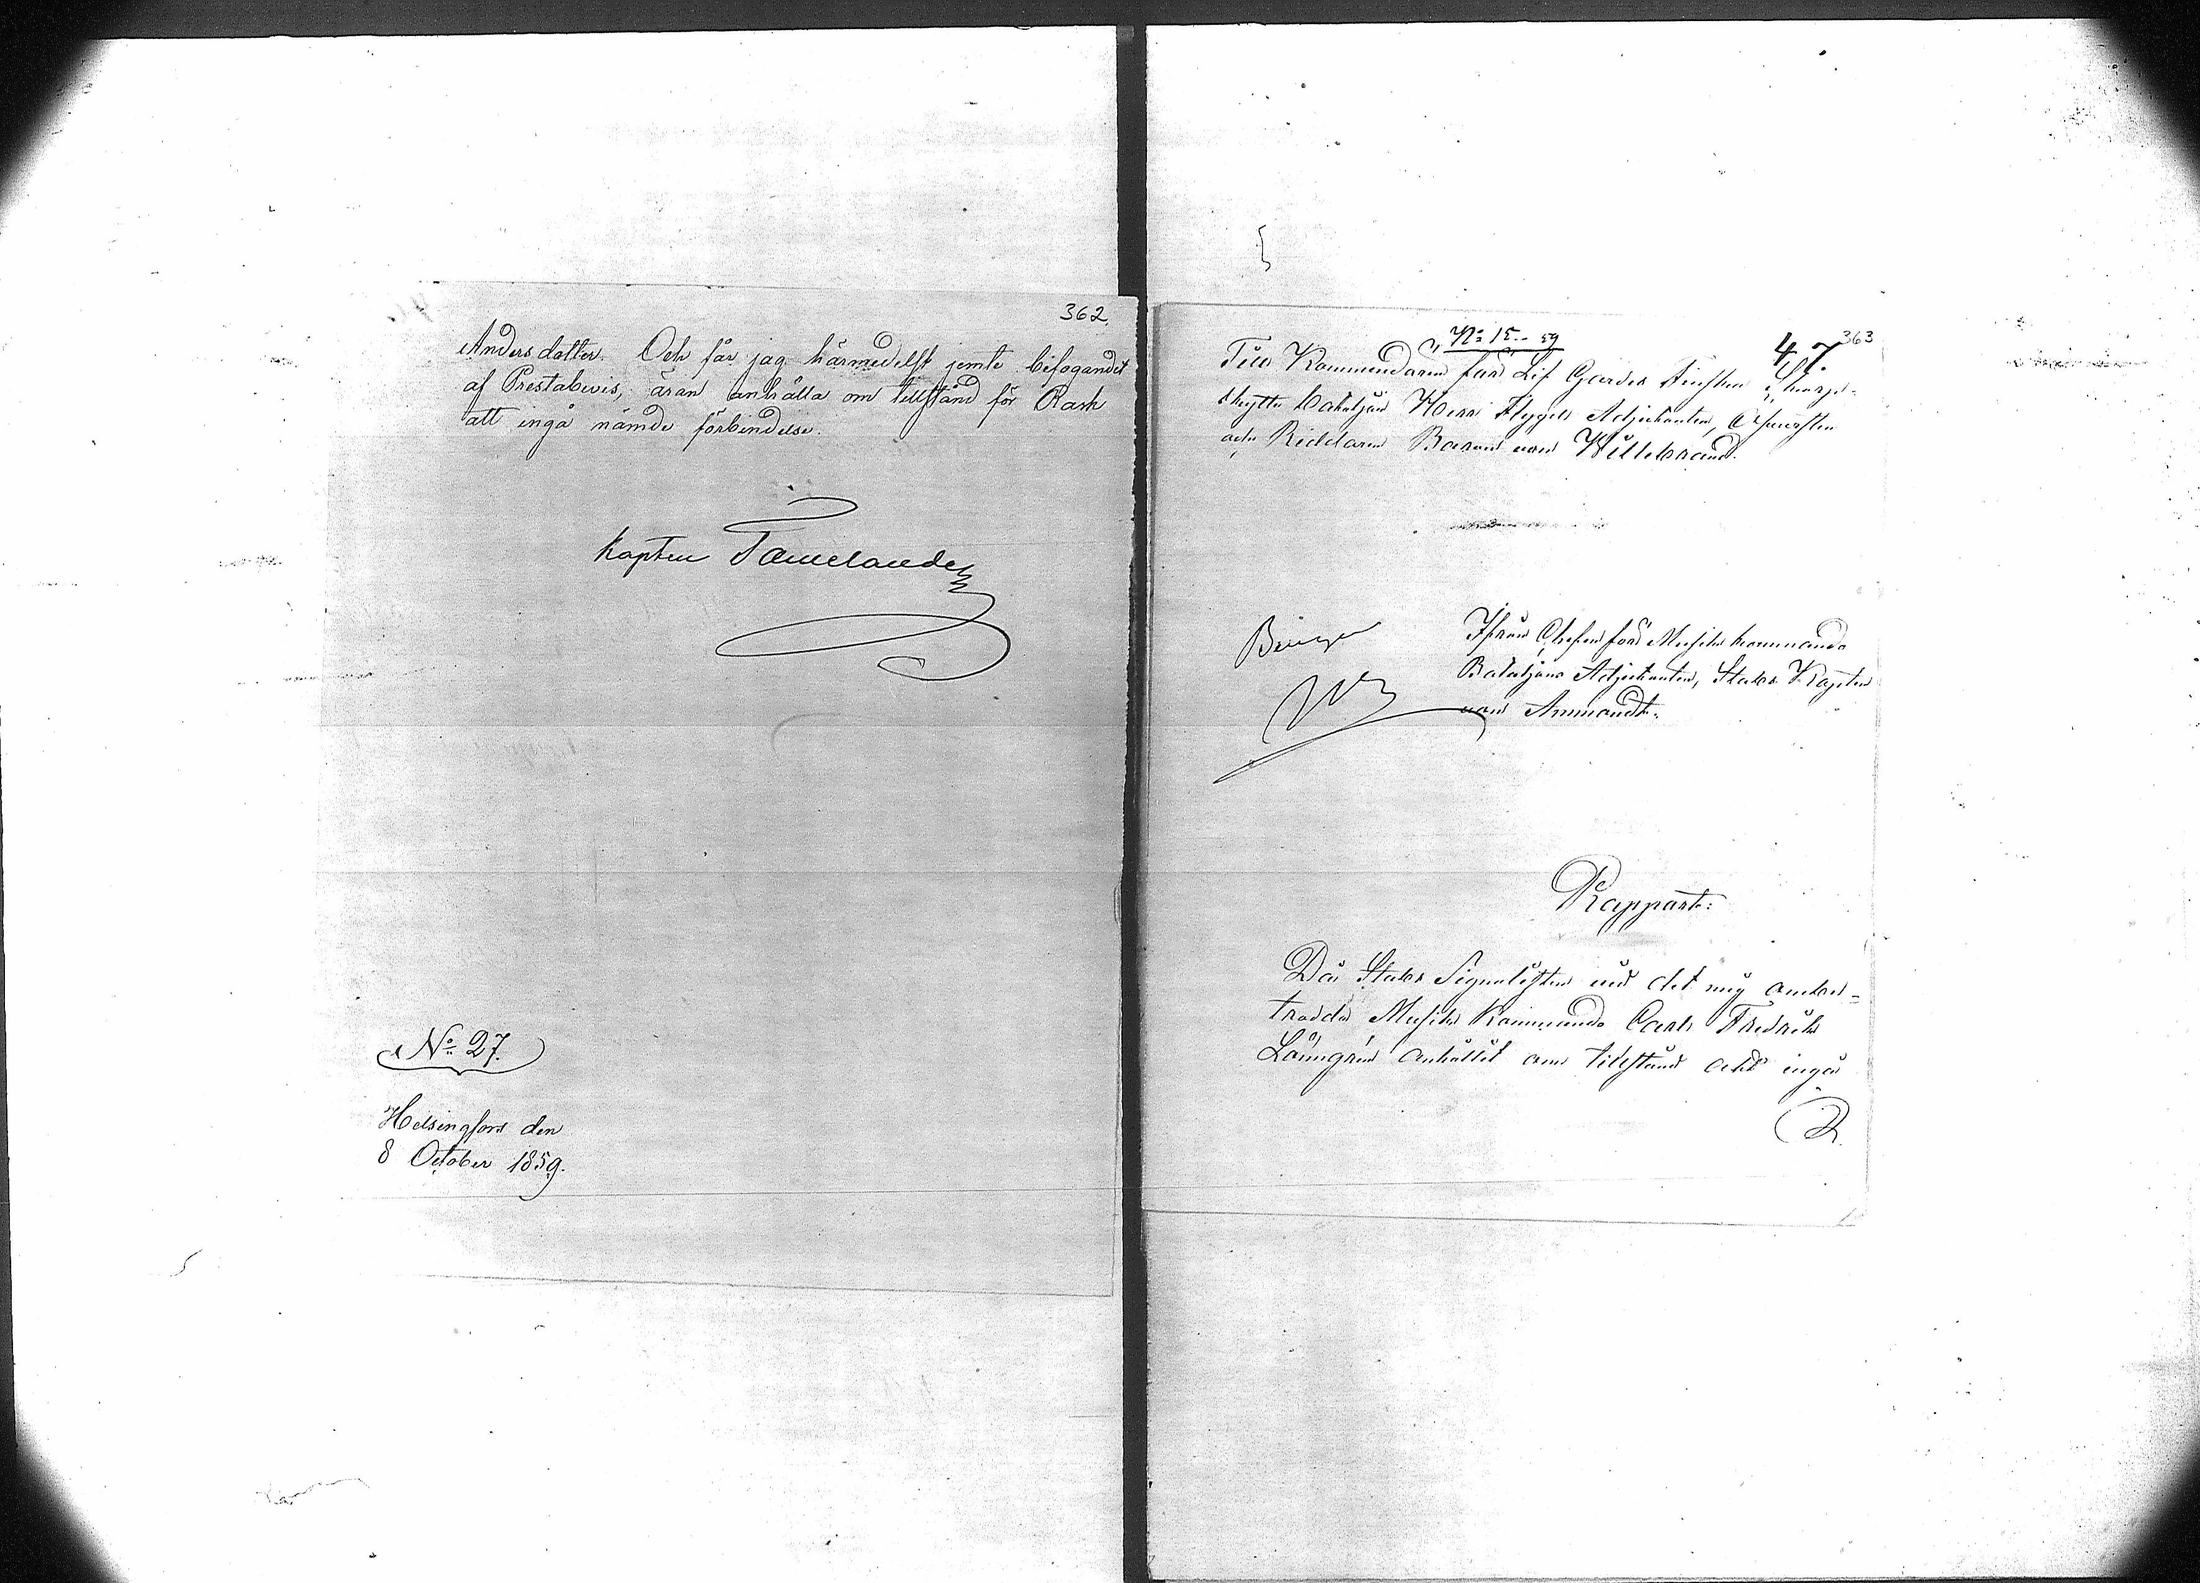 362.
Anders dotter. Och får jag härmedelst jemte bifogandet
af Prestabevis, äran anhålla om tillstånd för Rask
att ingå nämde förbindelse.
Kapten Tamelander
No 27.
Helsingfors den
8 October 1859.
363
No 15. 59
47.
Till Kommendören för Lif Gardes Finska Skarp-
skytte bataljon Herr Flygel Adjutanten, Öfversten
och Riddaren Baron von Willebrand.
Ifrån Chefen för Musik kommando
Bataljons Adjutanten, Stabs Kapten
von Ammondt.
Rapport:
Då Stabs Signalisten vid det mig anbe-
trodda Musik Kommando Carl Fredrik
Lönngren anhållit om tillstånd att ingå